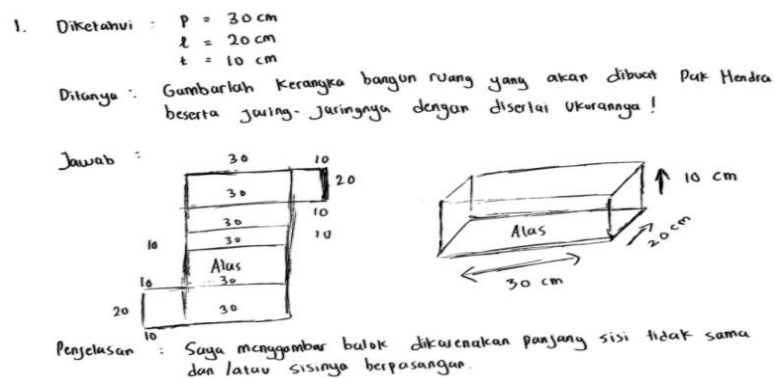 1. Diketahui : p = 30 cm
l = 20 cm
t = 10 cm
Ditanya : Gambarlah kerangka bangun ruang yang akan dibuat Pak Hendra
beserta jaring-jaringnya dengan disertai ukurannya !
Jawab :
30 10
30 20
30 10
10 30 10
Alas
10 30
20 30
10
Alas
10 cm
20 cm
30 cm
Penjelasan : Saya menggambar balok dikarenakan panjang sisi tidak sama
dan /atau sisinya berpasangan.